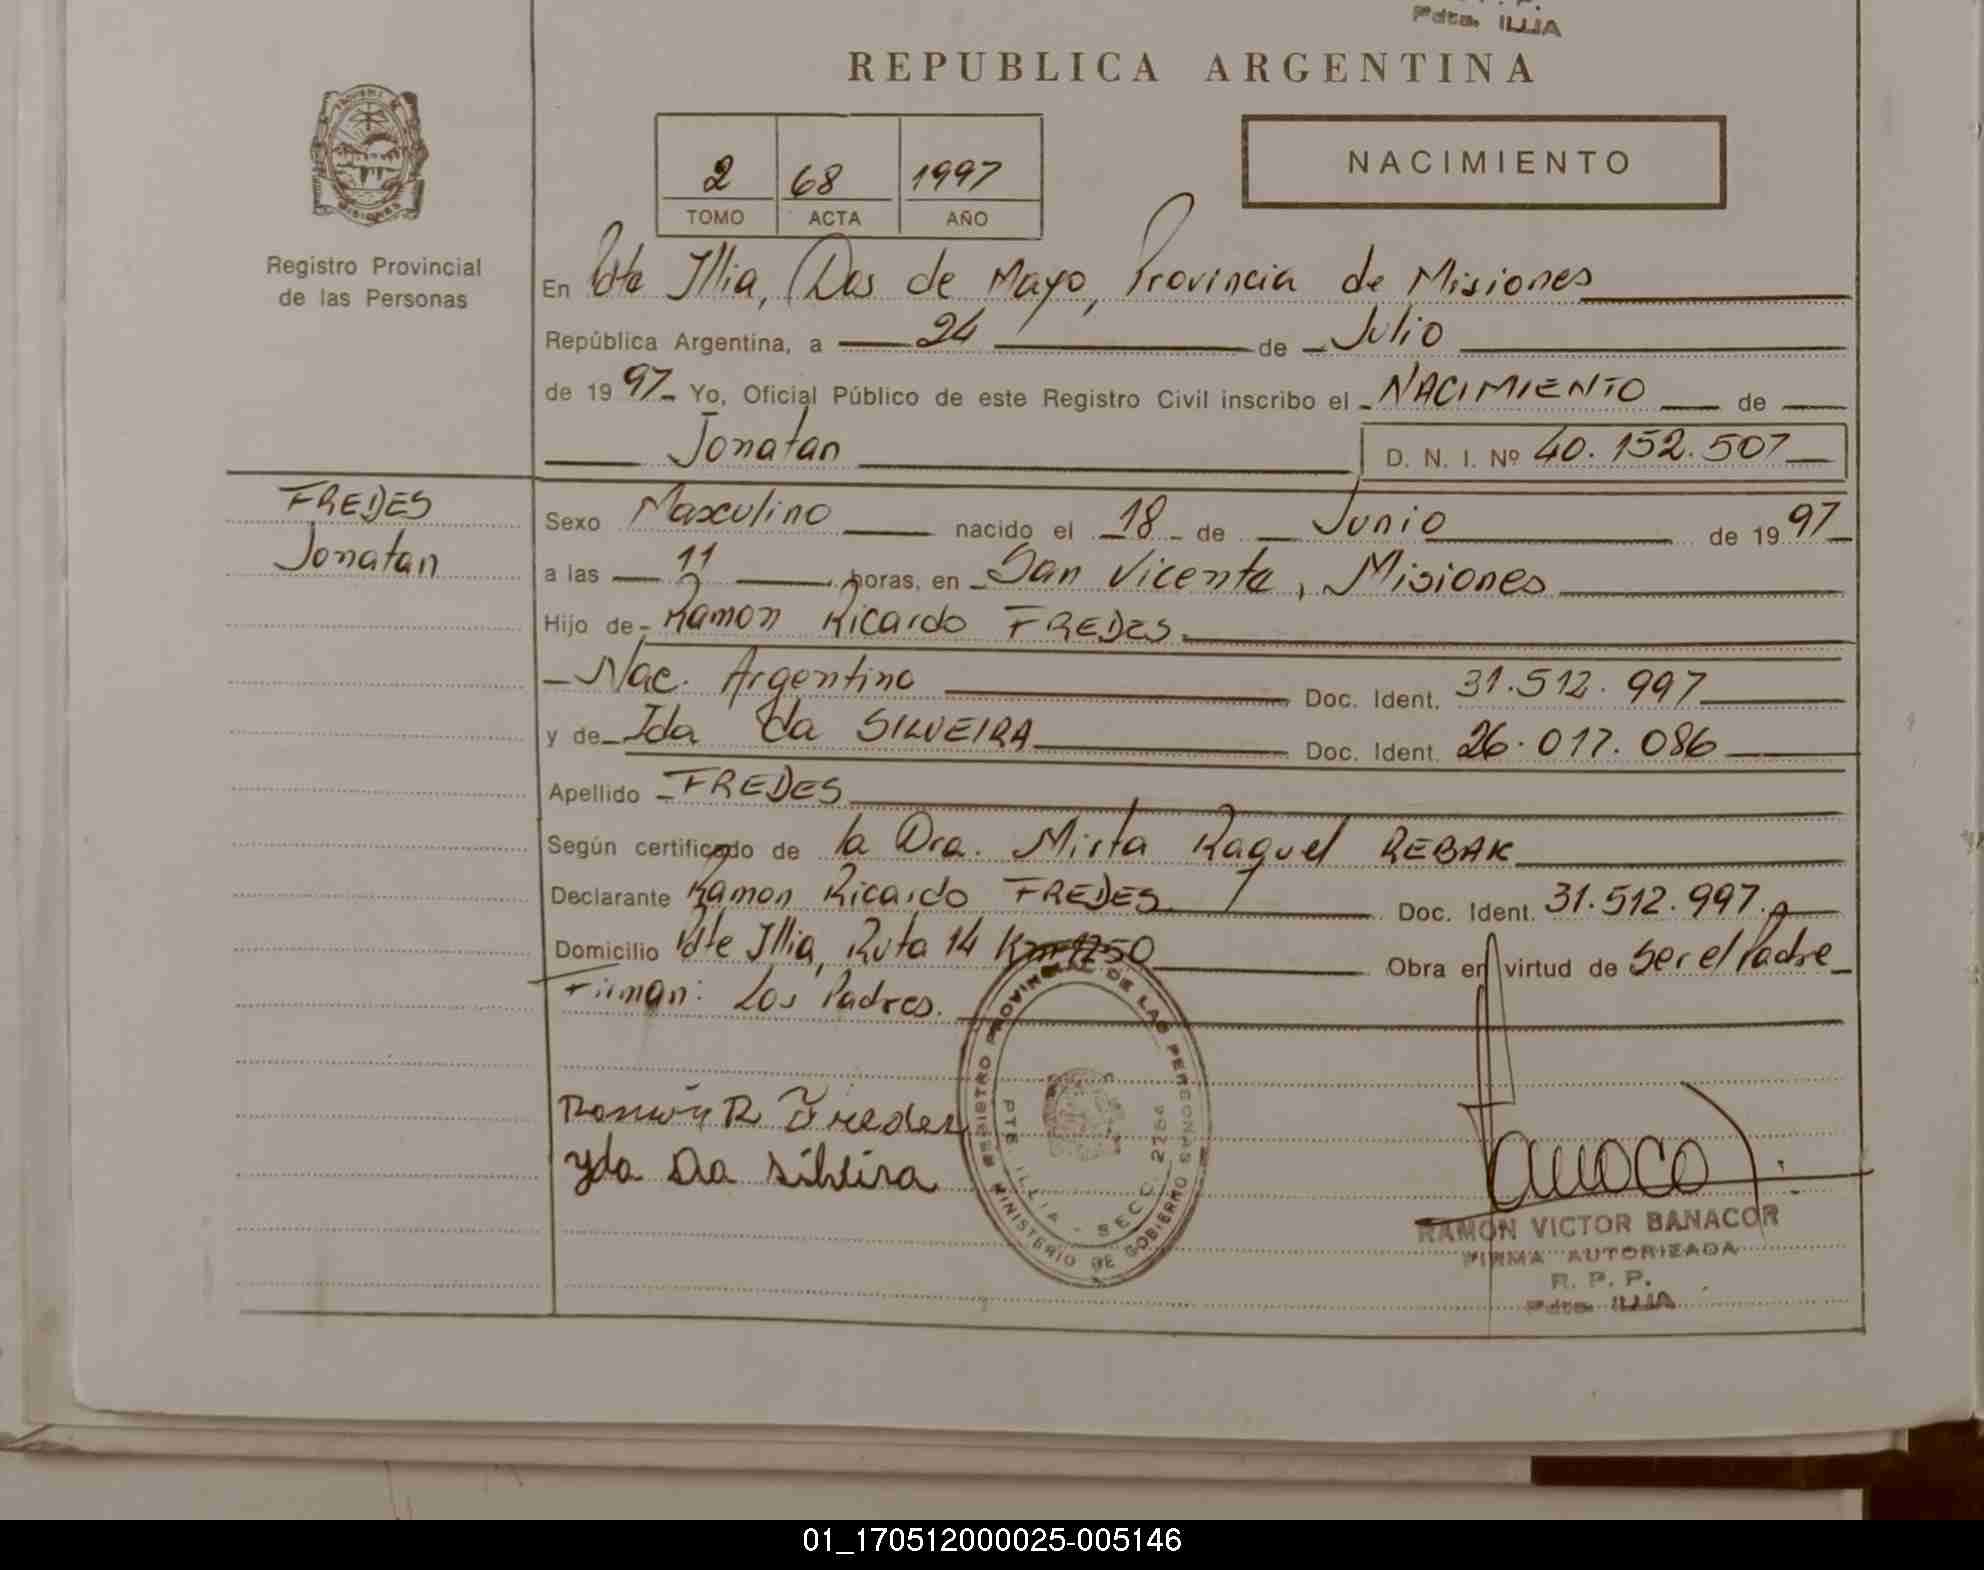 Pdte. ILLIA
REPUBLICA ARGENTINA
2 68 1997
TOMO ACTA AÑO
NACIMIENTO
Registro Provincial
de las Personas
En Pdte Illia, Dos de Mayo, Provincia de Misiones
República Argentina, a 24 de Julio
de 1997 Yo, Oficial Público de este Registro Civil inscribo el NACIMIENTO de
Jonatan D. N. I. Nº 40.152.507
FREDES
Jonatan
Sexo Masculino nacido el 18 de Junio de 1997
a las 11 horas, en San Vicente, Misiones
Hijo de Ramon Ricardo FREDES
Nac. Argentino Doc. Ident. 31.512.997
y de Ida da SILVEIRA Doc. Ident. 26.017.086
Apellido FREDES
Según certificado de la Dra. Mirta Raquel REBAK
Declarante Ramon Ricardo FREDES Doc. Ident. 31.512.997
Domicilio Pdte Illia, Ruta 14 Km 1250 Obra en virtud de Ser el Padre
Firman: Los Padres.
Ramón R Fredes
yda Da Silveira
REGISTRO PROVINCIAL DE LAS PERSONAS
MINISTERIO DE GOBIERNO
PTE. ILLIA - SECC. 2254
RAMON VICTOR BANACOR
FIRMA AUTORIZADA
R. P. P.
Pdte. ILLIA
01_170512000025-005146